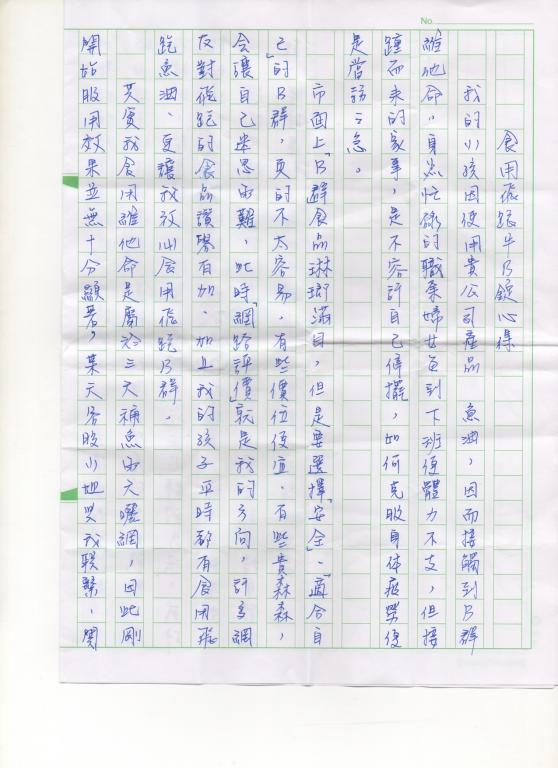 No.
食用飛跑牛B錠心得
我的小孩因使用貴公司產品 魚油，因而接觸到B群
維他命，身為忙碌的職業婦女每到下班便體力不支，但接
踵而來的家事，是不容許自己停擺，如何克服身体疲勞便
是當務之急。
市面上「B群食品琳瑯滿目，但是要選擇「安全」、「適合自
己」的B群，真的不太容易，有些價位便宜、有些貴森森，
會讓自己進退兩難，此時「網路評價」就是我的方向，許多網
友對飛跑的食品讚譽有加、加上我的孩子平時都有食用飛
跑魚油、更讓我放心食用飛跑B群，
其實我食用維他命是屬於三天補魚兩天曬網，因此剛
開始服用效果並無十分顯著，某天客服小姐與我聯繫、關